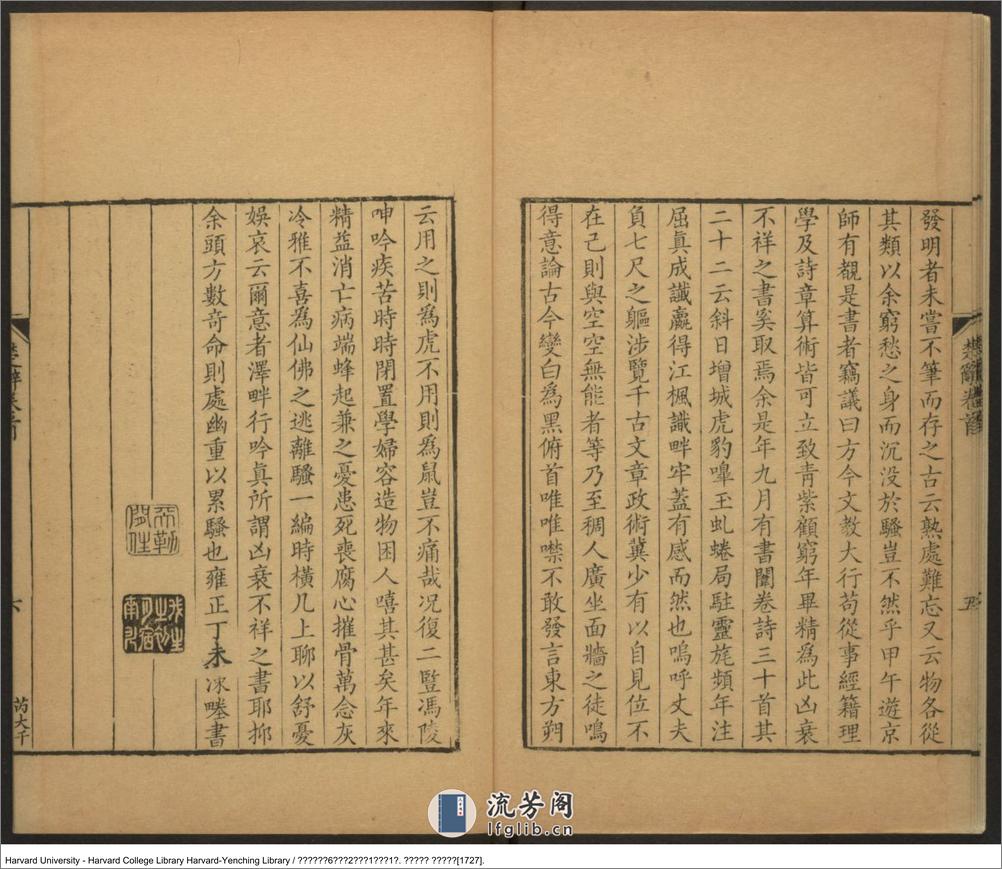 發明者未嘗不筆而存之古云熟處難忘又云物各從
其類以余窮愁之身而沉没於騷豈不然乎甲午遊京
師有覩是書者竊議曰方今文教大行苟從事經籍理
學及詩章算術皆可立致青紫顧窮年畢精為此凶衰
不祥之書奚取焉余是年九月有書闈卷詩三十首其
二十二云斜日增城虎豹嘷玉虬蜷局駐靈旄頻年注
屈真成讖贏得江楓識畔牢蓋有感而然也嗚呼丈夫
負七尺之軀涉覽千古文章政術兾少有以自見位不
在己則與空空無能者等乃至稠人廣坐面牆之徒鳴
得意論古今變白為黑俯首唯唯噤不敢發言東方朔
楚辭卷首
五
云用之則為虎不用則為鼠豈不痛哉况復二豎馮陵
呻吟疾苦時時閉置學婦容造物困人嘻其甚矣年來
精益消亡病端蜂起兼之憂患死喪腐心摧骨萬念灰
冷雅不喜為仙佛之逃離騷一編時橫几上聊以舒憂
娛哀云爾意者澤畔行吟真所謂凶衰不祥之書耶抑
余頭方數奇命則處幽重以累騷也雍正丁未冰壑書
楚辭卷首
六
芮大千
流芳阁
lfglib.cn
Harvard University - Harvard College Library Harvard-Yenching Library / ??????6???2???1???1?. ????? ?????[1727].